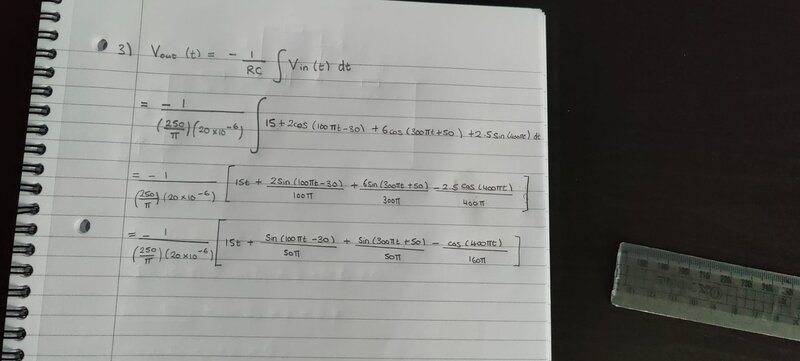 3) Vout (t) = - 1/RC ∫ Vin (t) dt
= - 1/((250/π)(20×10^-6)) ∫ 15 + 2cos(100πt-30) + 6cos(300πt+50) + 2.5sin(400πt) dt
= - 1/((250/π)(20×10^-6)) [ 15t + 2sin(100πt-30)/100π + 6sin(300πt+50)/300π - 2.5cos(400πt)/400π ]
= - 1/((250/π)(20×10^-6)) [ 15t + sin(100πt-30)/50π + sin(300πt+50)/50π - cos(400πt)/160π ]